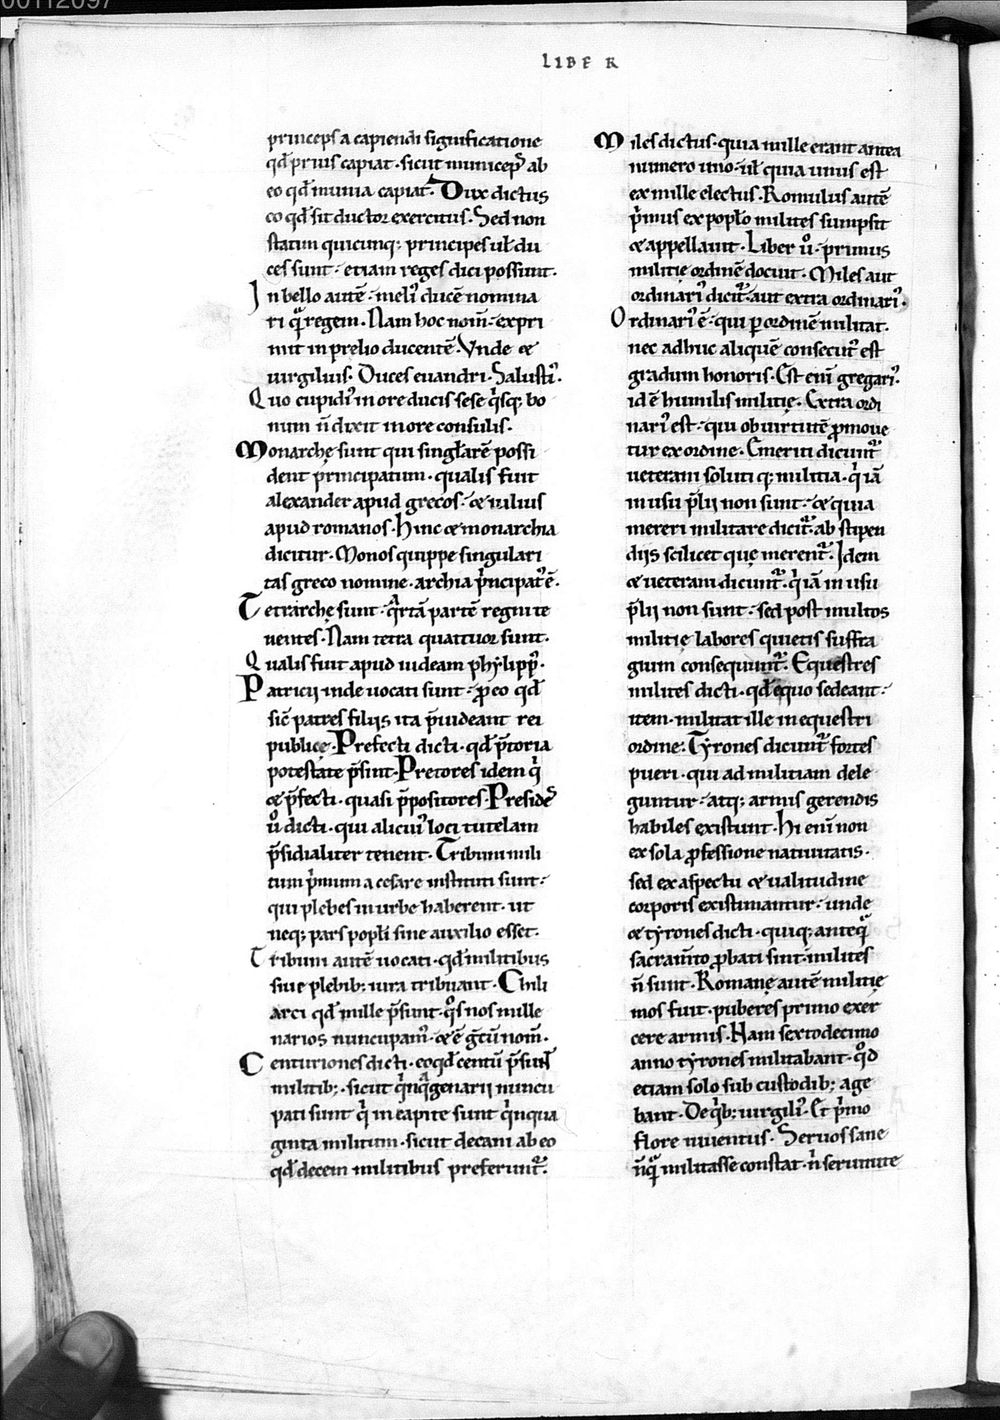 00112097
LIBER
princeps a capiendi significatione
qđ prius capiat · sicut municep̄s ab
eo qđ munia capiat. Dux dictus
eo qđ sit ductor exercitus. Sed non
statim quicunq; principes ul̄ du
ces sunt · etiam reges dici possunt.
In bello autē · meli᾿ ducē nomina
ri qͣ̄ regem. Nam hoc nom̄ · expri
mit in prelio ducentē. Vnde &
uirgilius. Duces euandri. Salusti᾿.
Quo cupidi᾿ in ore ducis sese qͥsq; bo
num n̄ dixit in ore consulis.
Monarchę sunt qui singl̄arē possi
dent principatum · qualis fuit
alexander apud grecos · & iulius
apud romanos. Hinc & monarchia
dicitur. Monos quippe singulari
tas greco nomine · archia pͥncipat᾿ ē.
Tetrarchę sunt · qͣrtā partē regni te
nentes. Nam tetra quattuor sunt.
Qualis fuit apud iudeam phylipp᾿.
Patricii inde uocati sunt · ꝓ eo qđ
sic̄ patres filiis ita p̄uideant rei
publicę. Prefecti dicti · qđ p̄toria
potestate p̄sint. Pretores idem qͥ
& p̄fecti · quasi p̄positores. Presides
uͦ dicti · qui alicui᾿ loci tutelam
p̄sidialiter tenent. Tribuni mili
tum pͥmum a cesare instituti sunt ·
qui plebes in urbe haberent · ut
neq; pars popl̄i sine auxilio esset.
Tribuni autē uocati · qđ militibus
siue plebib; iura tribuant. Chili
arci qđ mille p̄sunt · qͦs nos mille
narios nuncupam᾿ · & ē gͨcū nom̄.
Centuriones dicti · eo qđ centū p̄sint
militib; · sicut qͥnqͣgenarii nuncu
pati sunt qͥ in capite sunt qͥnqua
ginta militum · sicut decani ab eo
qđ decem militibus preferunt᾿.
Miles dictus · quia mille erant antea
numero uno · ul̄ quia unus est
ex mille electus. Romulus autē
pͥmus ex popl̄o milites sumpsit
& appellauit. Liber uͦ · primus
militię ordinē docuit. Miles aut
ordinari᾿ dicit᾿ · aut extra ordinari᾿.
Ordinari᾿ ē · qui ꝑ ordinē militat ·
nec adhuc aliquē consecut᾿ est
gradum honoris. Est eni᾿ gregari᾿ ·
id ē humilis militię. Extra ordi
nari᾿ est · qui ob uirtutē ꝓmoue
tur ex ordine. Emeriti dicunt᾿
ueterani soluti q; militia · qͥ iā
in usu p̄lii non sunt · & quia
mereri militare dicit᾿ · ab stipen
diis scilicet quę merent᾿. Idem
& ueterani dicunt᾿ · qͥ iā in usu
p̄lii non sunt · sed post multos
militię labores quietis suffra
gium consequunt᾿. Equestres
milites dicti · qđ equo sedeant ·
item · militat ille in equestri
ordine. Tyrones dicunt᾿ fortes
pueri · qui ad militiam dele
guntur · atq; armis gerendis
habiles existunt. Hi eni᾿ non
ex sola ꝓfessione natiuitatis ·
sed ex aspectu & ualitudine
corporis existimantur · unde
& tyrones dicti · quiq; anteqͣ̄
sacram̄to ꝓbati sint · milites
n̄ sunt. Romanę autē militię
mos fuit · puberes primo exer
cere armis. Nam sextodecimo
anno tyrones militabant · qͦd
etiam solo sub custodib; age
bant. De qͥb; uirgili᾿. Et pͥmo
flore iuuentus. Seruos sane
nūqͣ̄ militasse constat · nͥ seruitute